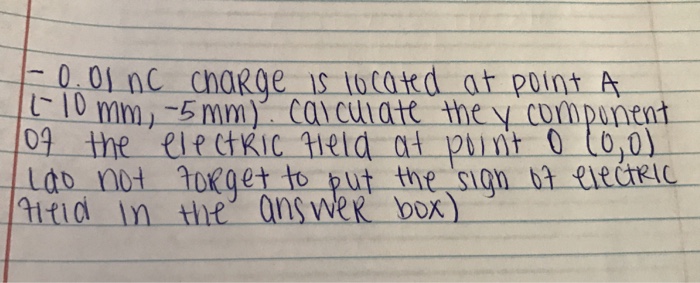 - 0.01 nC charge is located at point A
(-10 mm, -5 mm). calculate the y component
of the electric field at point O (0,0)
(do not forget to put the sign of electric
field in the answer box)